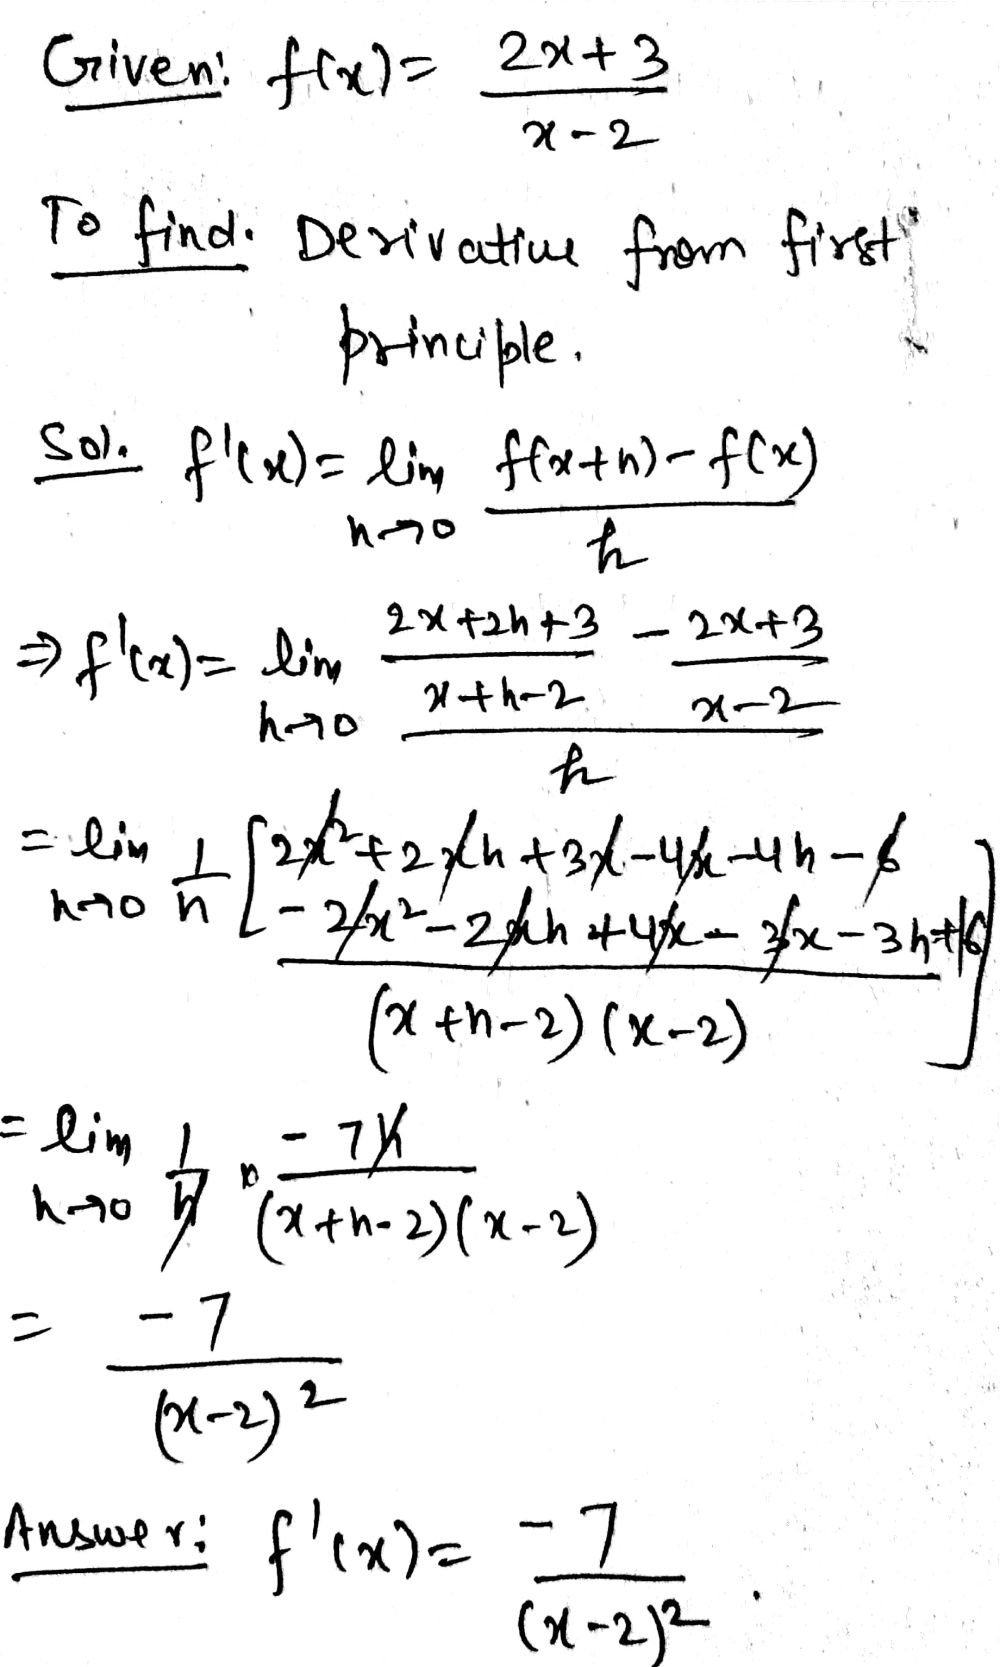 Given: f(x) = 2x+3 / x-2
To find. Derivative from first
principle.
Sol. f'(x) = lim h→0 f(x+h) - f(x) / h
⇒ f'(x) = lim h→0 2x+2h+3 / x+h-2 - 2x+3 / x-2 / h
= lim h→0 1/h [2x²+2xh+3x-4x-4h-6
-2x²-2xh+4x-3x-3h+6 / (x+h-2)(x-2)]
= lim h→0 1/h × -7h / (x+h-2)(x-2)
= -7 / (x-2)²
Answer: f'(x) = -7 / (x-2)².